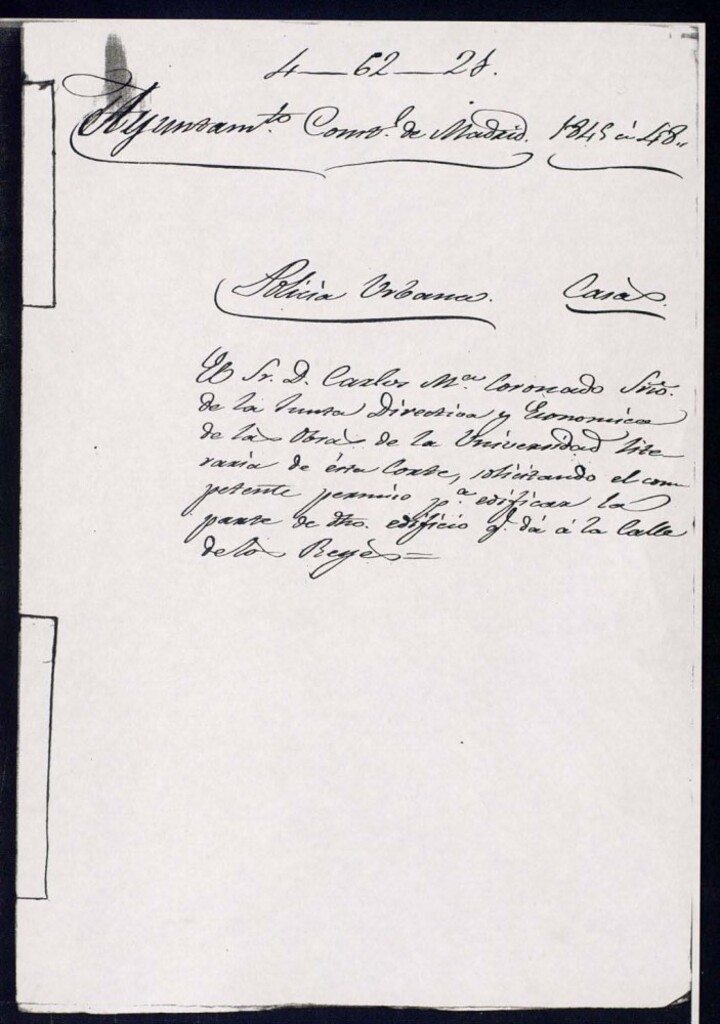 4—62—28.
Ayuntam.to Const.l de Madrid. 1845 á 48.
Policia Urbana. Casas.
El Sr. D. Carlos M.a Coronado Srio.
de la Junta Directiva y Economica
de las Obras de la Universidad lite
raria de ésta Corte, solicitando el com
petente permiso p.a edificar la
parte de dho. edificio q.e dá á la Calle
de los Reyes=